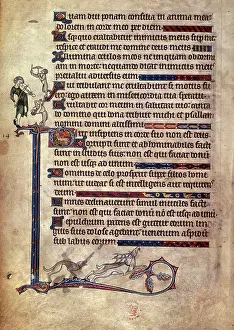 Quam diu ponam consilia in anima mea
dolorem in corde meo per diem
Usquequo exaltabitur inimicus meus super
respice et exaudi me domine deus meus
Illumina oculos meos ne
in morte
valui adversus eum
Qui tribulant me exultabunt si motus fuero
ego autem in misericordia tua
Exultabit cor meum in salutari tuo
domino qui bona tribuit michi et psallam
nomini domini altissimi
Dixit insipiens in corde suo non est deus
Corrupti sunt et abhominabiles facti
sunt in studiis suis non est qui faciat bonum
non est usque ad unum
Dominus de celo prospexit super filios homi
num ut videat si est intelligens aut requirens deum
Omnes declinaverunt simul inutiles facti sunt
non est qui faciat bonum non est usque ad unum
Sepulcrum patens est guttur eorum lin
guis suis dolose agebant venenum aspidum
sub labiis eorum